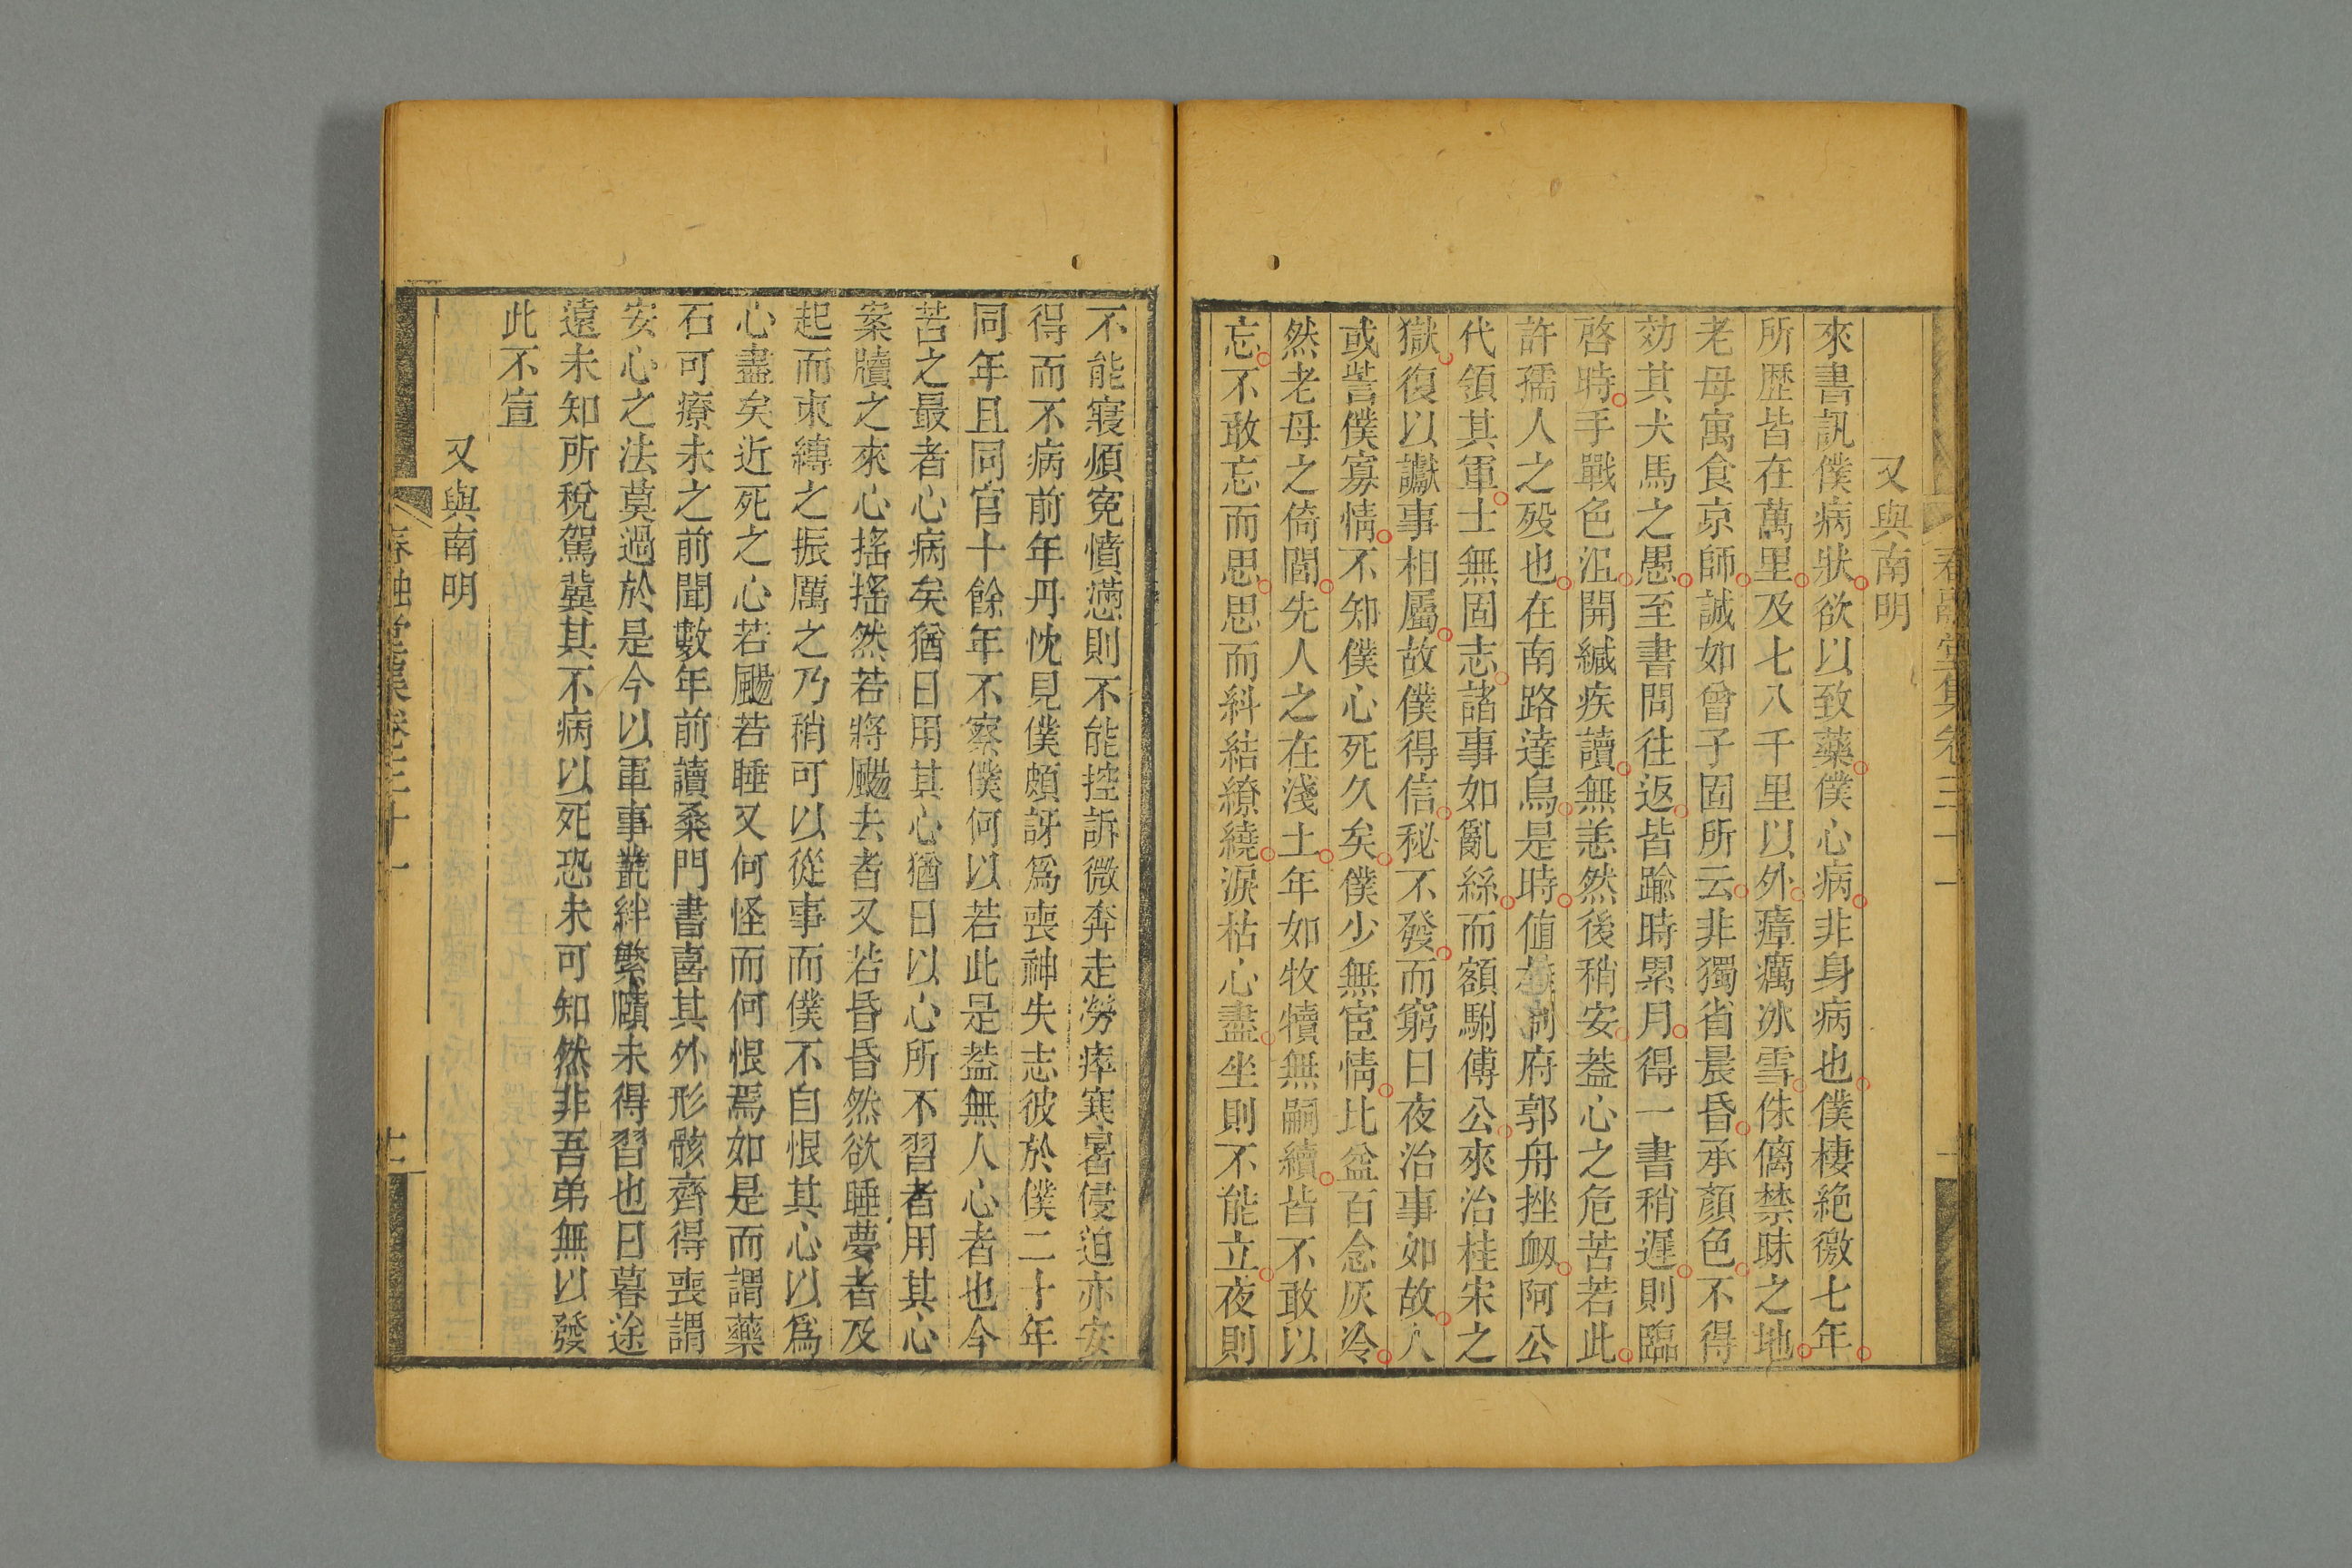 又與南明
來書訊僕病狀欲以致藥僕心病非身病也僕棲絶徼七年
所歷皆在萬里及七八千里以外瘴癘冰雪侏𠌯禁眜之地
老母寓食京師誠如曾子固所云非獨省晨昏承顏色不得
効其犬馬之愚至書問往返皆踰時累月得一書稍遲則臨
啓時手戰色沮開緘疾讀無恙然後稍安葢心之危苦若此
許孺人之殁也在南路達鳥是時值蔡制府郭舟挫衂阿公
代領其軍士無固志諸事如亂絲而額駙傅公來治桂宋之
獄復以讞事相屬故僕得信秘不發而窮日夜治事如故人
或訾僕寡情不知僕心死久矣僕少無宦情比益百念灰冷
然老母之倚閭先人之在淺土年如牧犢無嗣續皆不敢以
忘不敢忘而思思而糾結繚繞淚枯心盡坐則不能立夜則
春融堂集卷三十一
不能寢煩寃憤懣則不能控訴微奔走勞瘁寒暑侵迫亦安
得而不病前年丹忱見僕頗訝爲喪神失志彼於僕二十年
同年且同官十餘年不察僕何以若此是葢無人心者也今
苦之最者心病矣猶日用其心猶日以心所不習者用其心
案牘之來心搖搖然若將颺去者又若昏昏然欲睡夢者及
起而束縛之振厲之乃稍可以從事而僕不自恨其心以爲
心盡矣近死之心若颺若睡又何怪而何恨焉如是而謂藥
石可療未之前聞數年前讀桑門書喜其外形骸齊得喪謂
安心之法莫過於是今以軍事叢絆繁牘未得習也日暮途
遠未知所稅駕冀其不病以死恐未可知然非吾弟無以發
此不宣
又與南明
春融堂集卷三十一